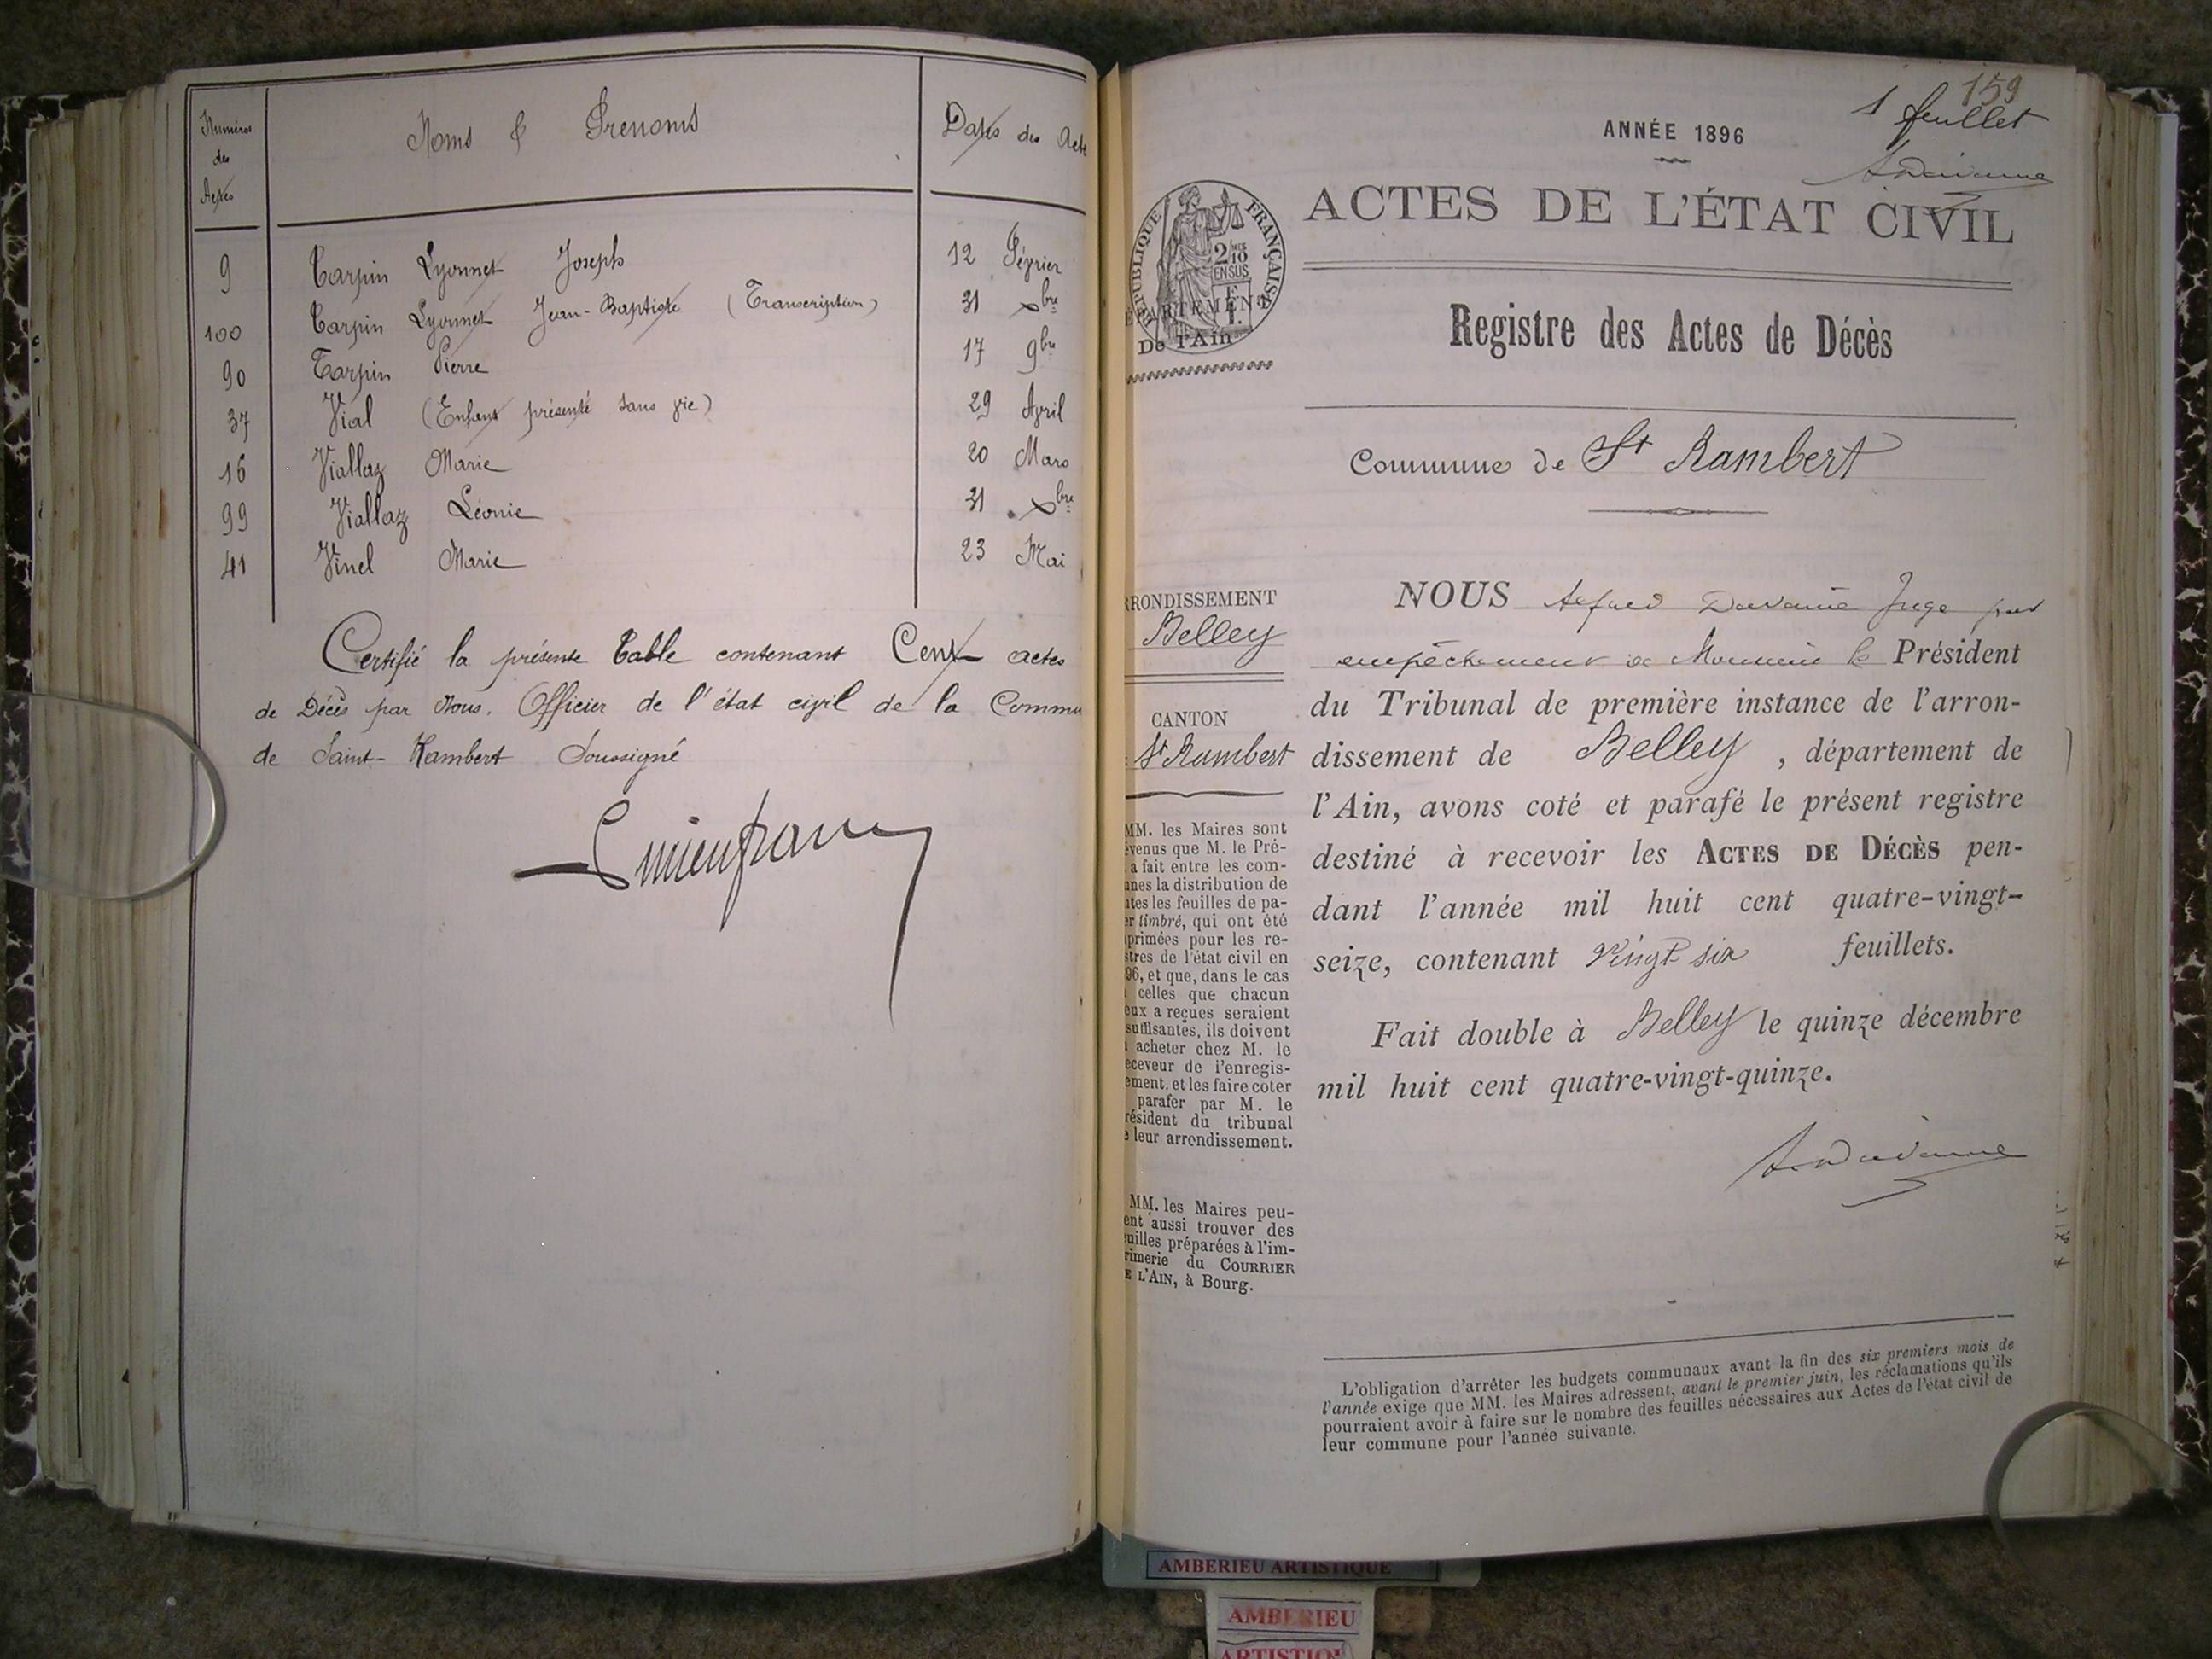 Numéros
des
Actes
Noms & Prénoms
Dates des Acte
9 Tarpin Lyonnet Joseph 12 Février
100 Tarpin Lyonnet Jean-Baptiste (Transcription) 31 Xbre
90 Tarpin Pierre 17 9bre
37 Vial (Enfant présenté sans vie) 29 Avril
16 Viallaz Marie 20 Mars
99 Viallaz Léonie 31 Xbre
41 Vinel Marie 23 Mai
Certifié la présente Table contenant Cent actes
de Décès par Nous. Officier de l'état civil de la Commu
de Saint-Rambert Soussigné
159
1 feuillet
ANNÉE 1896
ACTES DE L'ÉTAT CIVIL
RÉPUBLIQUE FRANÇAISE
2/10
EN SUS
De l'Ain
Registre des Actes de Décès
Commune de St Rambert
RRONDISSEMENT
Belley
CANTON
St Rambert
MM. les Maires sont
évenus que M. le Pré-
a fait entre les com-
unes la distribution de
utes les feuilles de pa-
er timbré, qui ont été
primées pour les re-
stres de l'état civil en
96, et que, dans le cas
celles que chacun
eux a reçues seraient
suffisantes, ils doivent
acheter chez M. le
eceveur de l'enregis-
ement, et les faire coter
parafer par M. le
résident du tribunal
e leur arrondissement.
MM. les Maires peu-
ent aussi trouver des
uilles préparées à l'im-
rimerie du COURRIER
E L'AIN, à Bourg.
NOUS Davanne Juge par
empêchement de Monsieur le Président
du Tribunal de première instance de l'arron-
dissement de Belley , département de
l'Ain, avons coté et parafé le présent registre
destiné à recevoir les ACTES DE DÉCÈS pen-
dant l'année mil huit cent quatre-vingt-
seize, contenant Vingt six feuillets.
Fait double à Belley le quinze décembre
mil huit cent quatre-vingt-quinze.
L'obligation d'arrêter les budgets communaux avant la fin des six premiers mois de
l'année exige que MM. les Maires adressent, avant le premier juin, les réclamations qu'ils
pourraient avoir à faire sur le nombre des feuilles nécessaires aux Actes de l'état civil de
leur commune pour l'année suivante.
AMBERIEU ARTISTIQUE
AMBERIEU